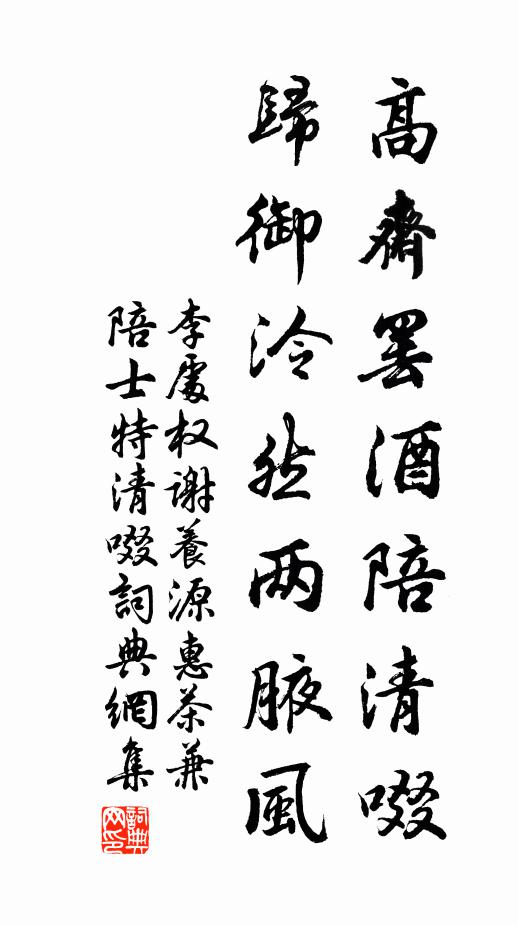 高齋罢酒陪清啜
歸御泠然两腋風
李處权谢養源惠茶兼
陪士特清啜詞典網集
詞典网印